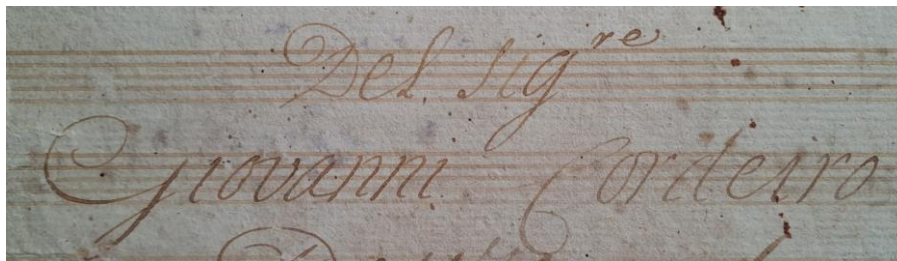 Del Sigre
Giovanni Cordeiro